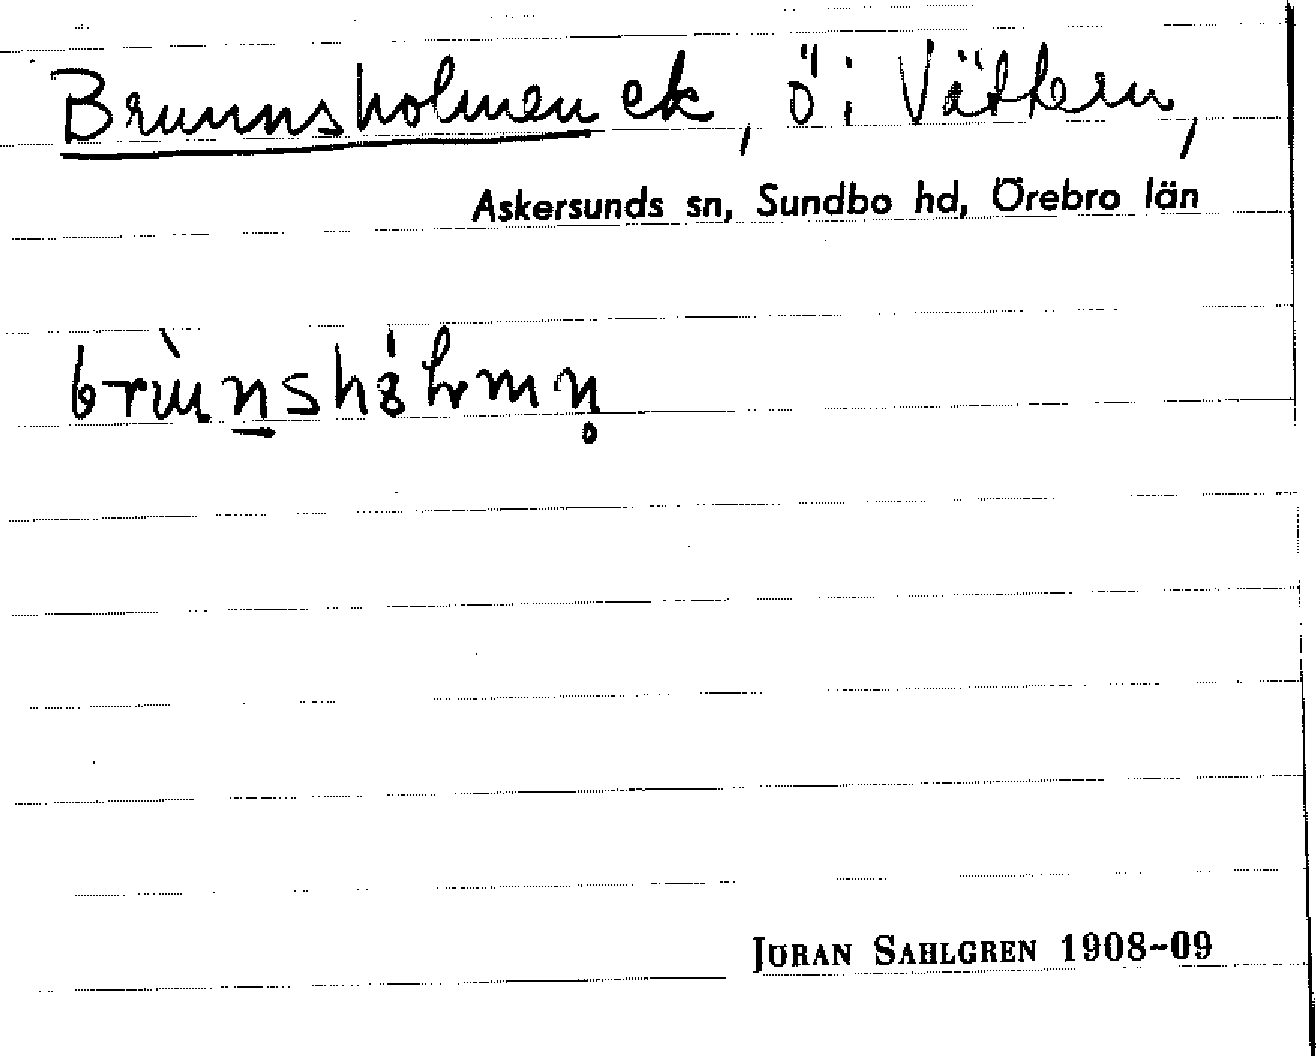 Brunnsholmen ek, ö i Vättern,
Askersunds sn, Sundbo hd, Örebro län
JÖRAN SAHLGREN 1908-09